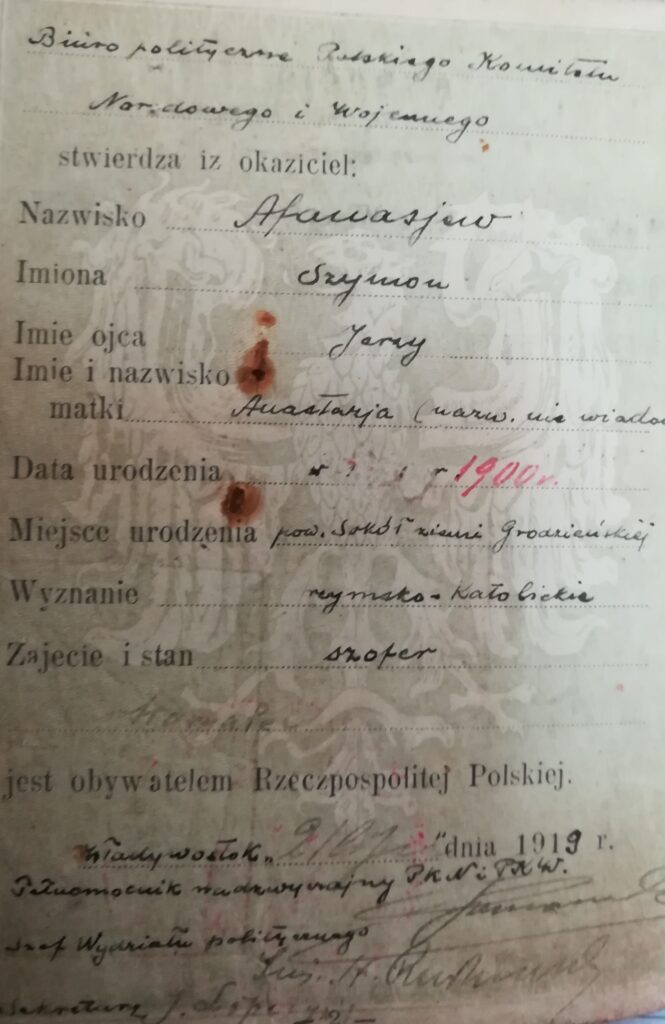 Biuro polityczne Polskiego Komitetu
Narodowego i Wojennego
stwierdza iz okaziciel:
Nazwisko Afanasjew
Imiona Szymon
Imie ojca Jerzy
Imie i nazwisko
matki Anastazja (nazw. nie wiado
Data urodzenia w r 1900 r.
Miejsce urodzenia pow. Sokół ziemi Grodzieńskiej
Wyznanie rzymsko-Katolickie
Zajecie i stan szofer
jest obywatelem Rzeczpospolitej Polskiej.
Władywostok „ " dnia 1919 r.
Pełnomocnik nadzwyczajny PKN i PKW.
Szef Wydziału politycznego
Inż. H.
Sekretarz J.